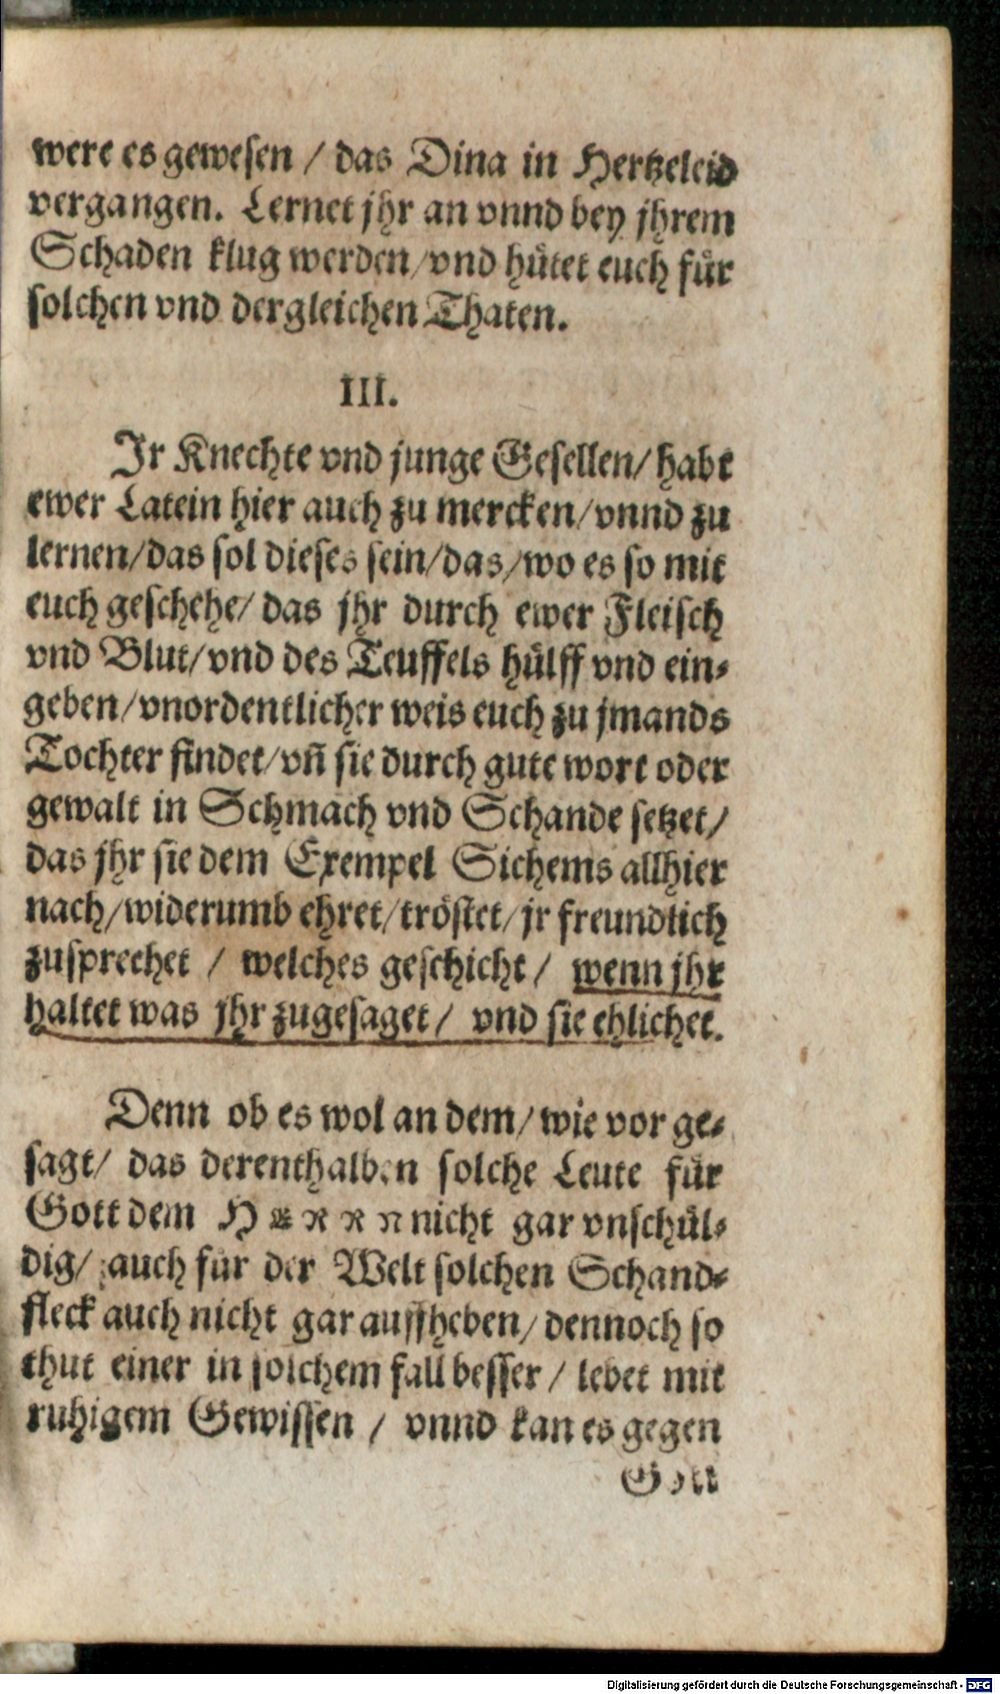 were es gewesen / das Dina in Hertzeleid
vergangen. Lernet jhr an vnnd bey jhrem
Schaden klug werden/vnd hütet euch für
solchen vnd dergleichen Thaten.
III.
Ir Knechte vnd junge Gesellen/habt
ewer Latein hier auch zu mercken/vnnd zu
lernen/das sol dieses sein/das/wo es so mit
euch geschehe/ das jhr durch ewer Fleisch
vnd Blut/vnd des Teuffels hülff vnd ein-
geben/vnordentlicher weis euch zu jmands
Tochter findet/vñ sie durch gute wort oder
gewalt in Schmach vnd Schande setzet/
das jhr sie dem Exempel Sichems allhier
nach/widerumb ehret/tröstet/jr freundlich
zusprechet / welches geschicht / wenn jhr
haltet was jhr zugesaget/ vnd sie ehlichet.
Denn ob es wol an dem/wie vor ge-
sagt/ das derenthalben solche Leute für
Gott dem HERRN nicht gar vnschül-
dig/ auch für der Welt solchen Schand-
fleck auch nicht gar auffheben/dennoch so
thut einer in solchem fall besser / lebet mit
ruhigem Gewissen / vnnd kan es gegen
Gott
Digitalisierung gefördert durch die Deutsche Forschungsgemeinschaft - DFG